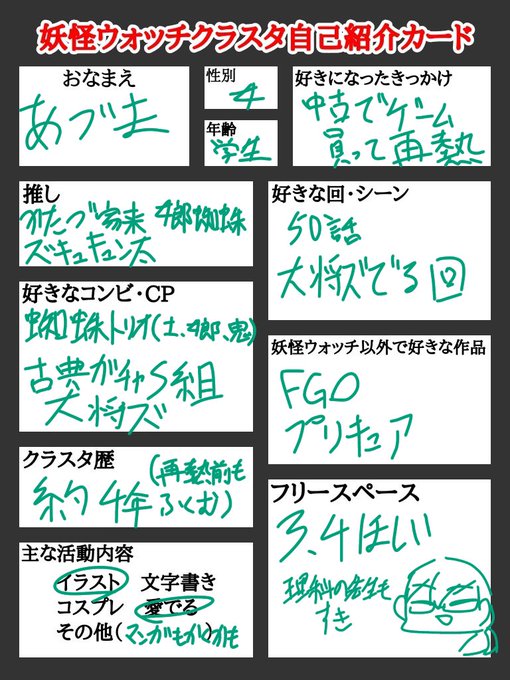 妖怪ウォッチクラスタ自己紹介カード
おなまえ
あづま
性別
女
年齢
学生
好きになったきっかけ
中古でゲーム
買って再熱
推し
かたづ家来 女郎蜘蛛
ズキュキュン太
好きな回・シーン
50話
大将ズでる回
好きなコンビ・CP
蜘蛛トリオ(土、女郎、鬼)
古典ガチャS組
大将ズ
妖怪ウォッチ以外で好きな作品
FGO
プリキュア
クラスタ歴
(再熱前も
約4年 ふくむ)
主な活動内容
イラスト 文字書き
コスプレ 愛でる
その他(マンガもかくかも)
フリースペース
3、4ほしい
理科の先生も
すき